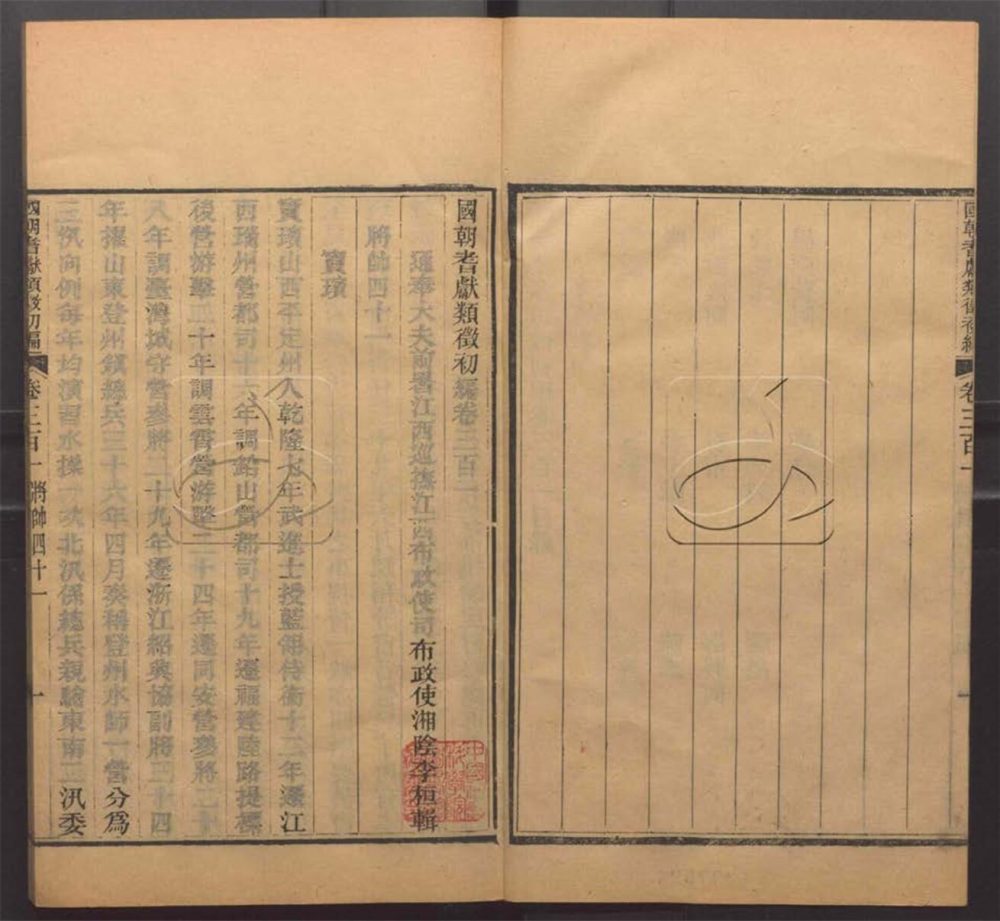 國朝耆獻類徵初編
卷三百一
國朝耆獻類徵初編卷三百一
通奉大夫前署江西巡撫江西布政使司布政使湘陰李桓輯
將帥四十一
寶璸
寶璸山西平定州人乾隆七年武進士授藍翎侍衛十二年遷江
西瑞州營都司十六年調鉛山營都司十九年遷福建陸路提標
後營游擊二十年調雲霄營游擊二十四年遷同安營參將二十
八年調臺灣城守營參將二十九年遷浙江紹興協副將三十四
年擢山東登州鎮總兵三十六年四月奏稱登州水師一營分爲
三汛向例每年均演習水操一次北汛係總兵親驗東南二汛委
國朝耆獻類徵初編 卷三百一 將帥四十一 一